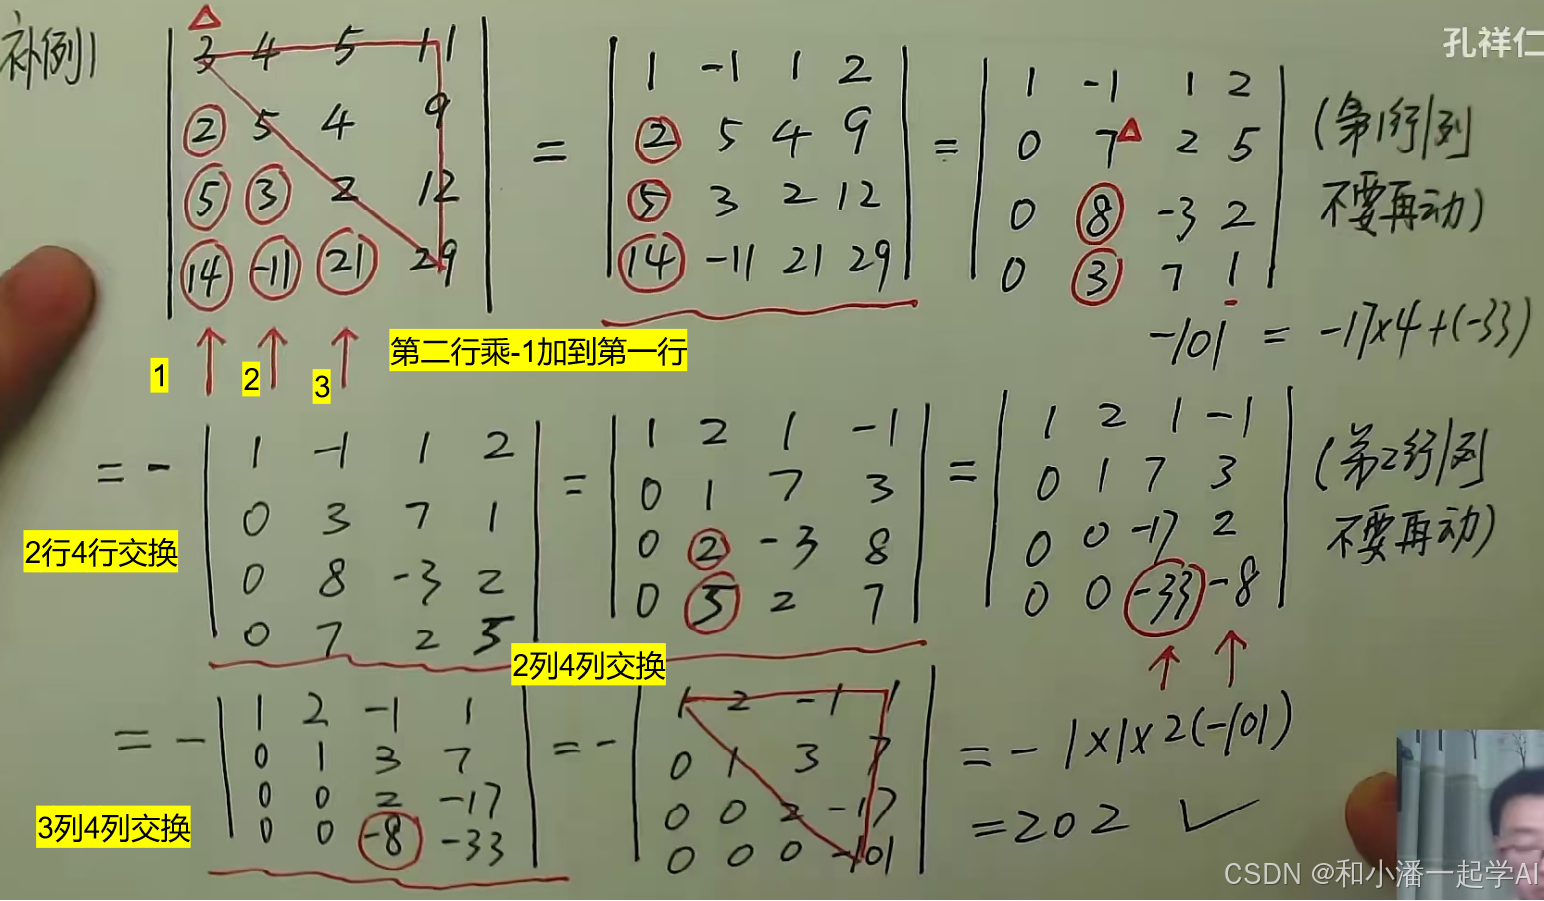 补例1
孔祥仁
3 4 5 11
2 5 4 9
5 3 2 12
14 -11 21 29
=
1 -1 1 2
2 5 4 9
5 3 2 12
14 -11 21 29
=
1 -1 1 2
0 7 2 5
0 8 -3 2
0 3 7 1
(第1行/列
不要再动)
1 2 3
第二行乘-1加到第一行
-101 = -17×4+(-33)
= -
1 -1 1 2
0 3 7 1
0 8 -3 2
0 7 2 5
2行4行交换
=
1 2 1 -1
0 1 7 3
0 2 -3 8
0 5 2 7
2列4列交换
=
1 2 1 -1
0 1 7 3
0 0 -17 2
0 0 -33 -8
(第2行/列
不要再动)
= -
1 2 -1 1
0 1 3 7
0 0 2 -17
0 0 -8 -33
3列4列交换
= -
1 2 -1 1
0 1 3 7
0 0 2 -17
0 0 0 -101
= - 1×1×2(-101)
= 202 ✓
CSDN @和小潘一起学AI